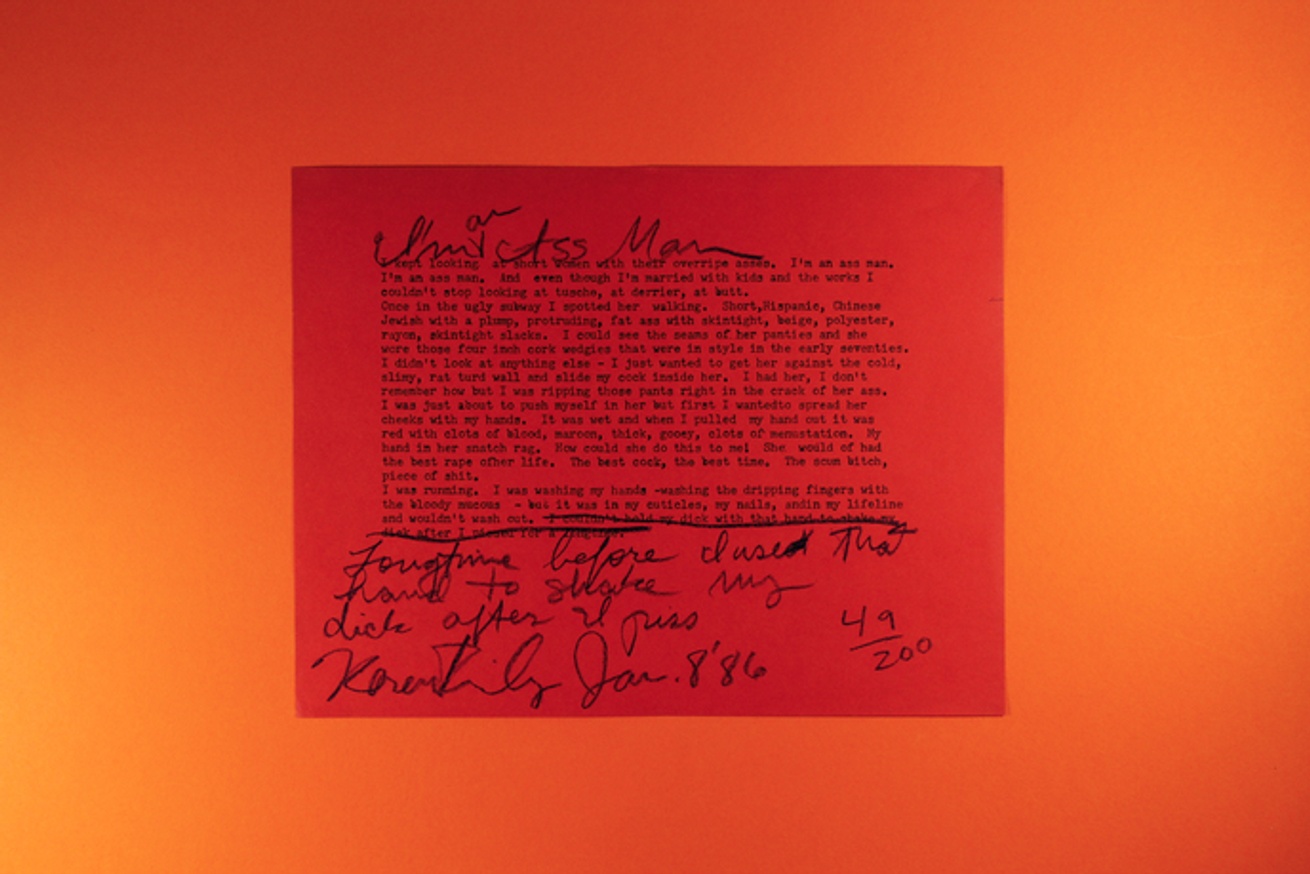 I'm an Ass Man
I kept looking at short women with their overripe asses. I'm an ass man.
I'm an ass man. And even though I'm married with kids and the works I
couldn't stop looking at tusche, at derrier, at butt.
Once in the ugly subway I spotted her walking. Short,Hispanic, Chinese
Jewish with a plump, protruding, fat ass with skintight, beige, polyester,
rayon, skintight slacks. I could see the seams of her panties and she
wore those four inch cork wedgies that were in style in the early seventies.
I didn't look at anything else - I just wanted to get her against the cold,
slimy, rat turd wall and slide my cock inside her. I had her, I don't
remember how but I was ripping those pants right in the crack of her ass.
I was just about to push myself in her but first I wantedto spread her
cheeks with my hands. It was wet and when I pulled my hand out it was
red with clots of blood, maroon, thick, gooey, clots of menustation. My
hand in her snatch rag. How could she do this to me! She would of had
the best rape ofher life. The best cock, the best time. The scum bitch,
piece of shit.
I was running. I was washing my hands -washing the dripping fingers with
the bloody mucous - but it was in my cuticles, my nails, andin my lifeline
and wouldn't wash out. I couldn't hold my dick with that hand to shake my
dick after I pissed for a longtime.
Longtime before I used that
hand to shake my
dick after I piss
Karen Finley Jan. 8 '86
49
200